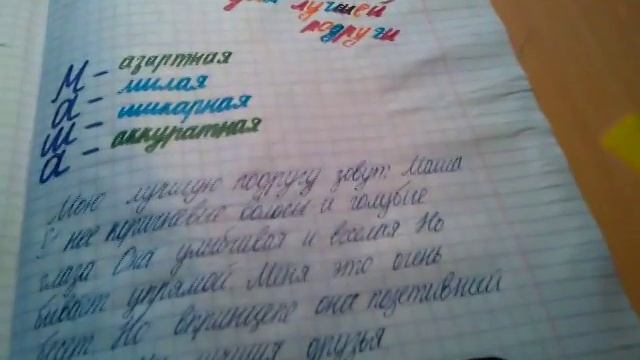 для лучшей
подруги
М - азартная
а - милая
ш - шикарная
а - аккуратная
Мою лучшую подругу зовут: Маша
У нее коричневые волосы и голубые
глаза Она улыбчивая и веселая Но
бывает упрямой. Меня это очень
бесит Но впринцепе она позетивний
лучшия друзья